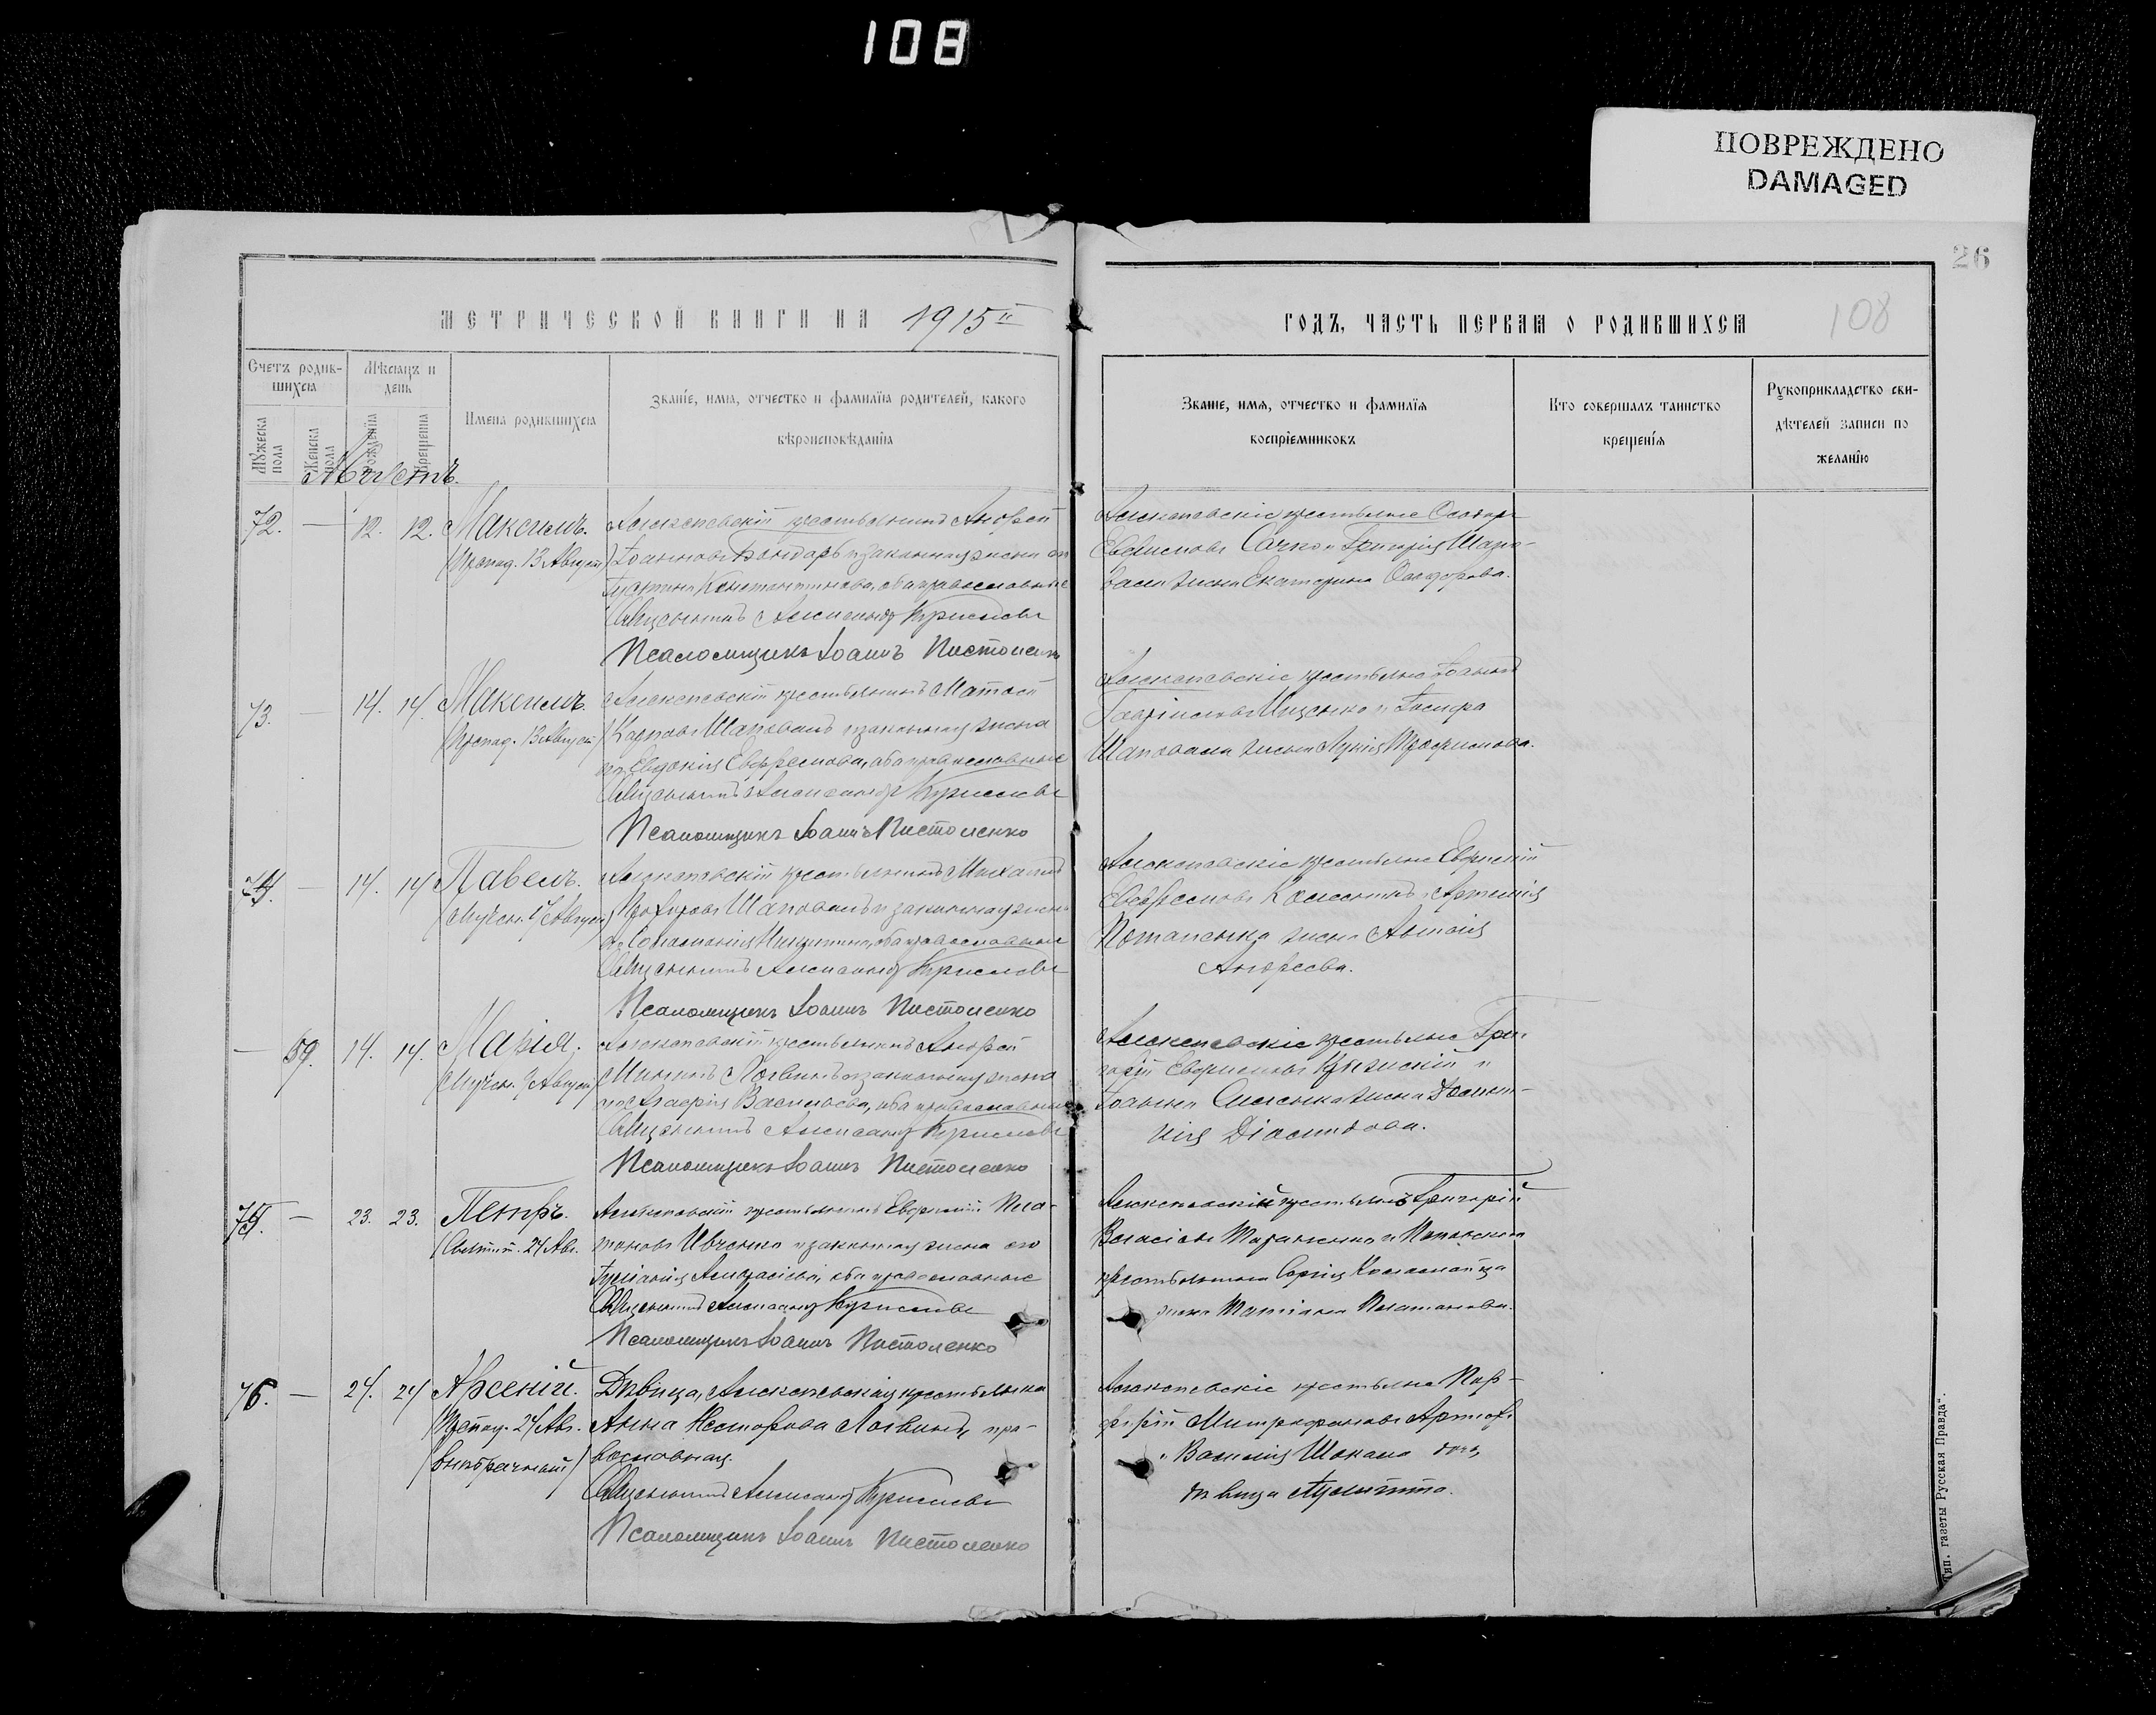 108
ПОВРЕЖДЕНО
DAMAGED
26
108
МЕТРИЧЕСКОЙ КНИГИ НА 1915й
ГОДЪ, ЧАСТЬ ПЕРВАЯ О РОДИВШИХСЯ
Счетъ родив-
шихся
Мужеска пола
Женска пола
Мѣсяцъ и
день
Рожденія
Крещенія
Имена родившихся
Званіе, имя, отчество и фамилія родителей, какого
вѣроисповѣданія
Званіе, имя, отчество и фамилія
воспріемниковъ
Кто совершалъ таинство
крещенія
Рукоприкладство сви-
дѣтелей записи по
желанію
Августъ.
72. — 12. 12. Максимъ.
Препод. 13 Август
Алексеевскій крестьянинъ Андрей
Іоанновъ Бондарь и законная жена его
Іустина Константинова, оба православные
Священникъ Александръ Кирилловъ
Псаломщикъ Іоаннъ Пистоленко
Алексеевскіе крестьяне Ѳеодоръ
Сачко и Григорія Шапо-
вала жена Екатерина Ѳеодорова.
73. — 14. 14. Максимъ.
Препод. 13 Август
Алексеевскій крестьянинъ Матѳей
Карповъ Шаповалъ и законная жена
его Евдокія Евфремова, оба православные
Священникъ Александръ Кирилловъ
Псаломщикъ Іоаннъ Пистоленко
Алексеевскіе крестьяне Іоаннъ
Гавріиловъ Ищенко и Іосифа
Шаповала жена Лукія Трофимова.
74. — 14. 14 Павелъ.
Мучен. 17 Август
Алексеевскій крестьянинъ Михаилъ
Шаповалъ и законная жена
его Соломонія Никитина, оба православные
Священникъ Александръ Кирилловъ
Псаломщикъ Іоаннъ Пистоленко
Алексеевскіе крестьяне Евфимій
Евфремовъ и Артемія
Потапенка жена Антонія
Андреева.
— 59. 14. 14. Марія.
Мучен. 9 Август
Алексеевскій крестьянинъ Андрей
Мининъ Логвинъ и законная жена
его Агафія Васильева, оба православные
Священникъ Александръ Кирилловъ
Псаломщикъ Іоаннъ Пистоленко
Алексеевскіе крестьяне Гри-
горій Евфимовъ и
Іоанна жена Домни-
кія Діомидова.
75. — 23. 23. Петръ.
Святит. 24 Авг.
Алексеевскій крестьянинъ Евфимій Пла-
тоновъ Ивченко и законная жена его
Іуліанія Аѳанасіева, оба православные
Священникъ Александръ Кирилловъ
Псаломщикъ Іоаннъ Пистоленко
Алексеевскій крестьянинъ Григорій
Власіевъ и
крестьянина Сергія Коломойца
жена Татіана Платонова.
76. — 24. 24 Арсеній.
Препод. 24 Авг.
(внѣбрачный)
Дѣвица, Алексеевская крестьянка
Анна Несторова Логвинъ, пра-
вославная.
Священникъ Александръ Кирилловъ
Псаломщикъ Іоаннъ Пистоленко
Алексеевскіе крестьяне Пор-
фирій Митрофановъ
и Василія дочь,
дѣвица Іулитта.
Тип. газеты "Русская Правда".